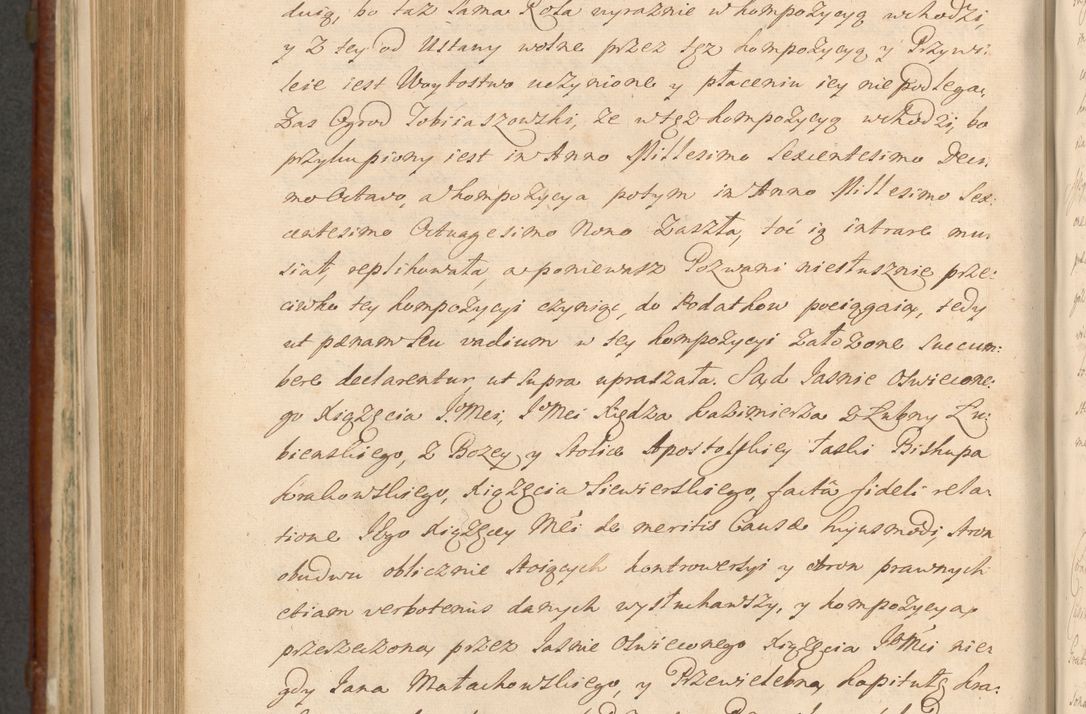 dnią, bo taż sama Rola wyraznie w kompozycyą wchodzi,
y z tey od Ustawy wolne przez tęz kompozycyą y Przywi:
leie iest Woytostwo uczynione y płaceniu iey nie podlega,
Zas Ogrod Tobiiaszowski, że w tęz kompozycyą wchodzi, bo
przykupiony iest in Anno Millesimo Sexcentesimo Deci:
mo Octavo, a kompozycya potym in Anno Millesimo Sex:
centesimo Octuagesimo Nono Zaszła, toć ią intrare mu:
siał, replikowała, a poniewasz Pozwani niesłusznie prze:
ciwko tey kompozycyi czyniąc, do Podatkow pociągaią, tedy
ut pænam seu vadium w tey kompozycyi założone succum:
bere declarentur, ut supra upraszała. Sąd Iasnie Oswiecone:
go Xiążęcia JMci, JMci Xiędza Kazimierza z Łubny Łu:
bienskiego, z Bozey y Stolice Apostolskiey łaski Biskupa
Krakowskiego, Xiążęcia Siewierskiego, factâ fideli rela:
tione JEgo Xiążęcey Mci de meritis Causæ hujusmodi, stron
obudwu oblicznie stoiących kontrowersyi y obron prawnych
etiam verbotenus danych wysłuchawszy, y kompozycyą,
przeszczoną przez Iasnie Oswieconego Xiążęcia JMci nie:
gdy Jana Małachowskiego, y Przewielebną Kapitułę Kra: